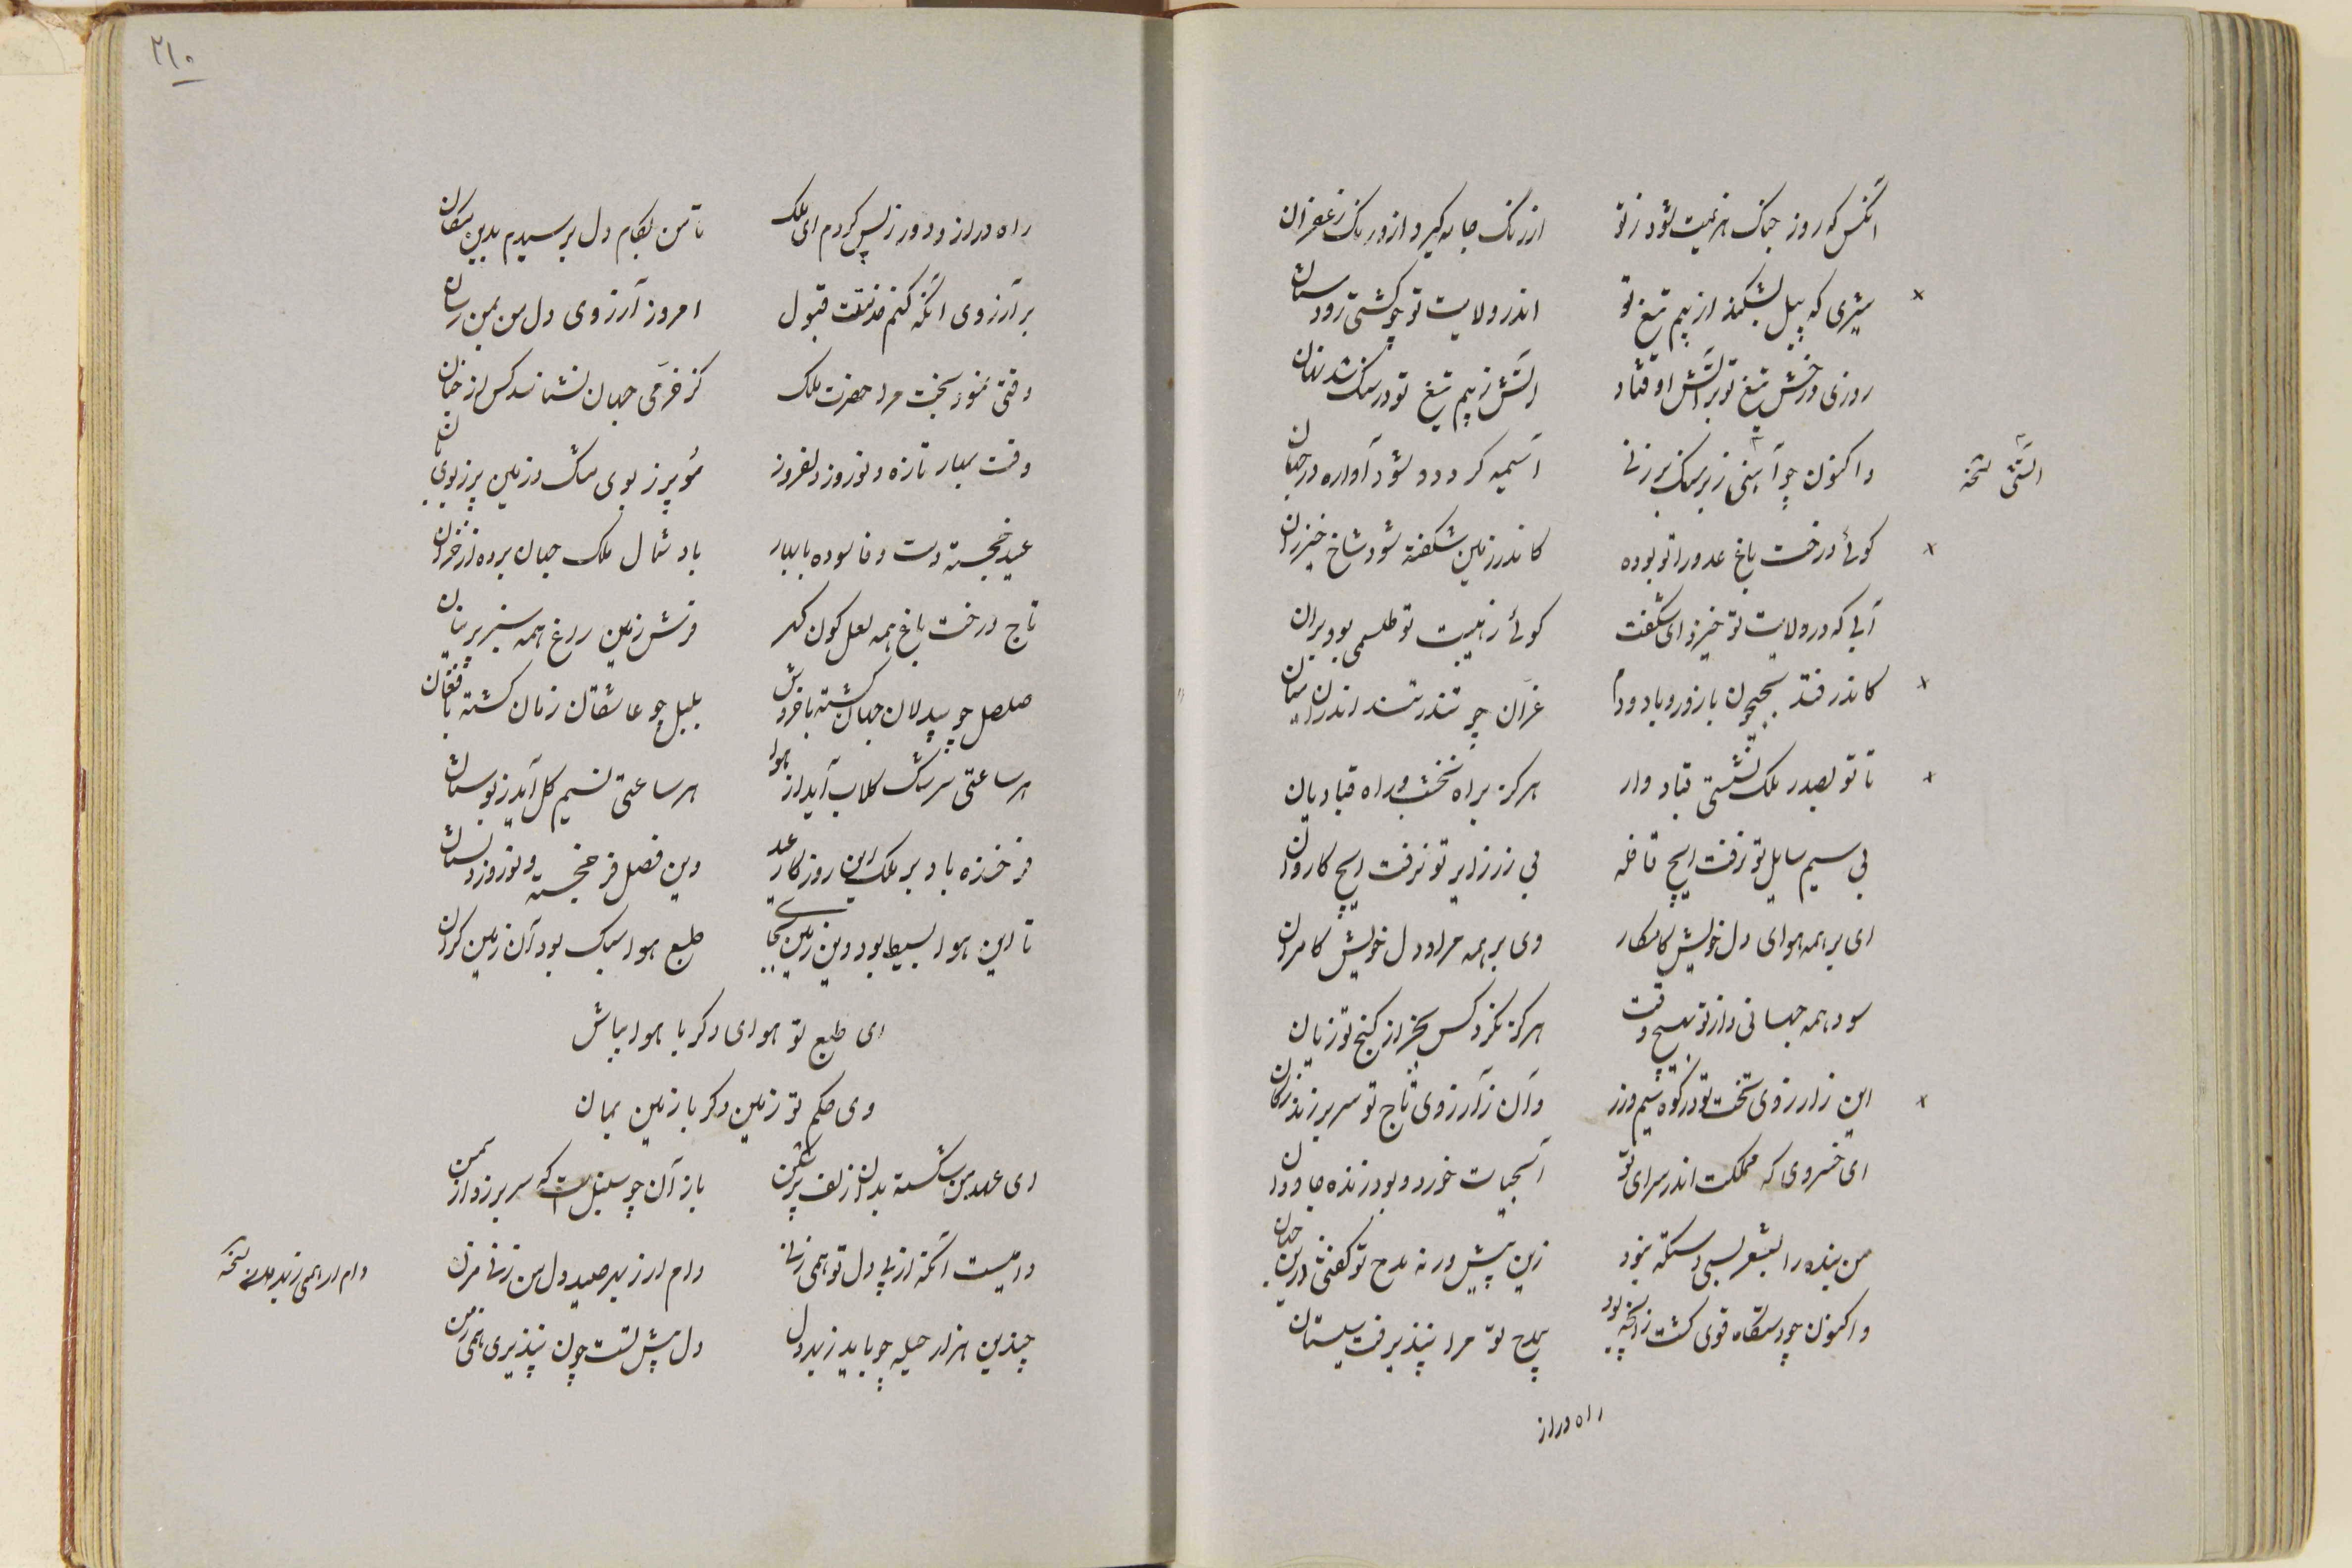 آنکس که روز جنک هزیمت شود ز تو از رنک جامه گیرد از و رنک زعفران
شیری که پیل بشکند از بیم تیغ تو اندر ولایت تو چو کشتی رود ستان
روزی درخش تیغ تو بر آتش اوفتاد آتش ز بیم تیغ تو در سنک شد نهان
واکنون چو آهنی ز بر سنک بر زنی آسیمه کردد و بشود آواره در جهان
آتشی نسخه
کوئی درخت باغ عدو را تو بوده کاندر زمین شکفته شود شاخ خیزران
آبی که در ولایت تو خیزد ای شگفت کوئی ز هیبت تو طلسمی بود بران
کاندر فتد بجیحون با زور و باد و دم غرّان چو تندر تند اندران میان
تا تو بصدر ملک نشستی قباد وار هرکز براه نخشب و راه قبادیان
بی سیم سایل تو نرفت ایچ قافله بی زرّ زایر تو نرفت ایچ کاروان
ای بر همه هوای دل خویش کامکار وی بر همه مراد دل خویش کامران
سود همه جهانی و از تو بهیچ وقت هرکز نکرد کس بجز از کنج تو زیان
این ز آرزوی تخت تو در کوه سیم و زر وان ز آرزوی تاج تو سر بر زند ز کان
ای خسروی که مملکت اندر سرای تو آب حیات خورد و بود زنده جاودان
من بنده را بشعر بسی دستکه نبود زین پیش ورنه مدح تو گفتی درین جهان
واکنون چو دستکاه قوی کشت زانچه بود بی مدح تو مرا نپذیرفت سیستان
راه دراز
۲۱۰
راه دراز و دور ز پس کردم ای ملک تا من بکام دل برسیدم بدین مکان
بر آرزوی آنکه کنم خدمتت قبول امروز آرزوی دل من بمن رسان
وقتی نمود بخت مرا حضرت ملک کز خرّمی جهان نشناسد کس از جنان
وقت بهار تازه و نوروز دلفروز پر ز بوی مشک و زمین پر ز بوی بان
عید خجسته دست وفا سوده با بهار باد شمال ملک جهان برده از خزان
تاج درخت باغ همه لعل کون کهر فرش زمین راغ همه سبز پرنیان
صلصل چو بیدلان جهان کشته با خروش بلبل چو عاشقان زمان کشته با فغان
هر ساعتی سرشک کلاب آید از هوا هر ساعتی نسیم کل آید ز بوستان
فرخنده باد بر ملک این روزکار عید وین فصل فرخجسته و نوروز دلستان
تا این هوا بسیط بود وین زمین بجای طبع هوا سبک بود آن زمین کران
ای طبع تو هوای دکر با هوا بباش
وی حکم تو زمین دکر با زمین بمان
ای عهد من شکسته بدان زلف پرشکن باز آن چو سنبل است که سر بر زد از سمن
دامیست آنکه از پی دل تو همی زنی دام از ز بهر صید دل من زنی مزن
دام از همی ز بهر نسخه
چندین هزار حیله چو باید ز بهر دل دل پیش تست چون نپذیری همی ز من